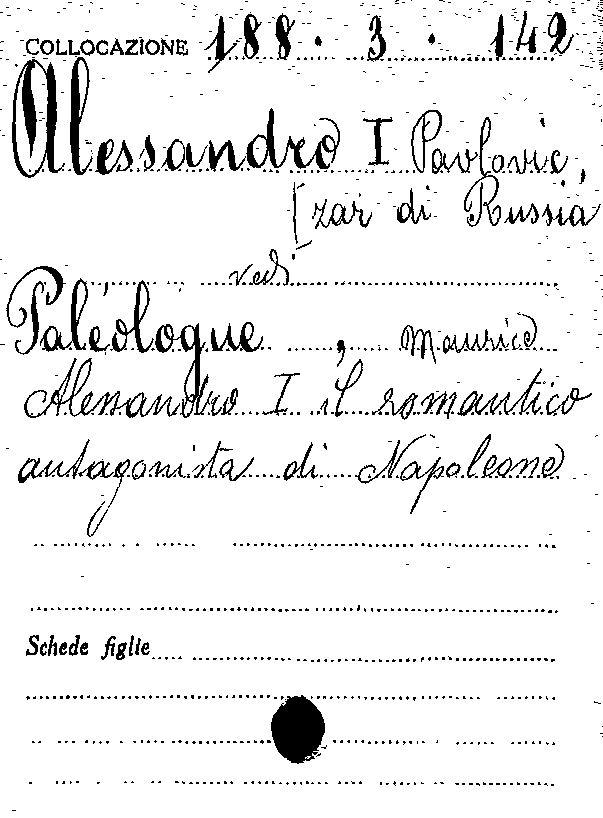 COLLOCAZIONE 188 · 3 · 142
Alessandro I Pavlovic,
[zar di Russia
vedi
Paléologue, Maurice
Alessandro I il romantico
antagonista di Napoleone
Schede figlie